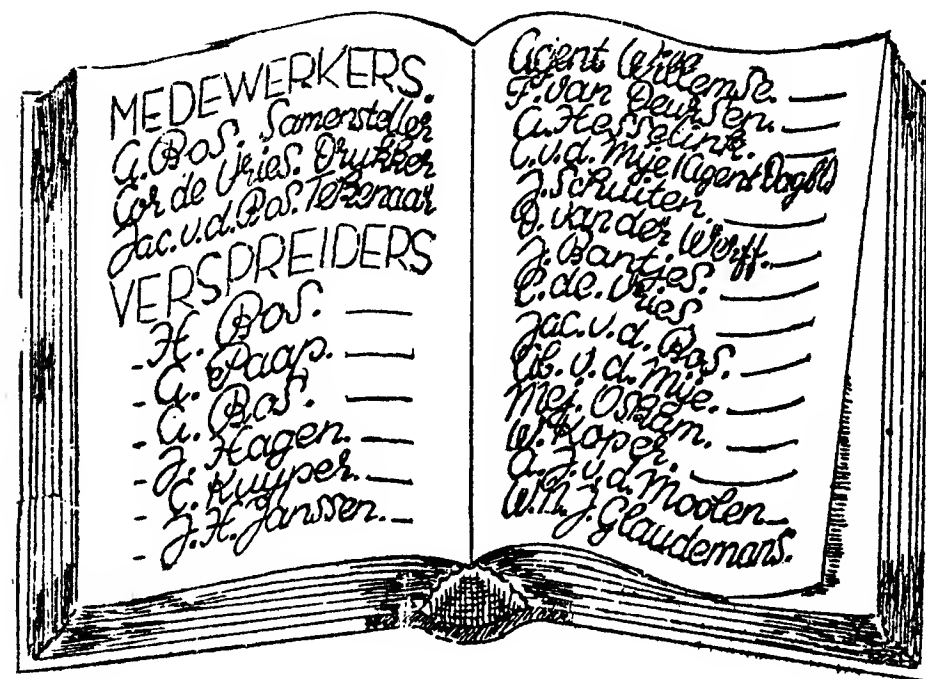 MEDEWERKERS.
G. Bos. Samensteller
Cor de Vries. Drukker
Jac. v. d. Bos. Tekenaar
VERSPREIDERS
- H. Bos. —
- A. Paap. —
- G. Bos. —
- J. Hagen. —
- C. Kuyper. —
- J. H. Janssen. —
Agent Willemse. —
F. van Deursen. —
A. Hesselink. —
C. v. d. Mije (Agent Dagbl)
J. Schuiten. —
D. van der Werff. —
J. Bantjes. —
C. de. Vries —
Jac. v. d. Bos. —
Lib. v. d. Mije. —
Mej. Oskam. —
W. Koper. —
A. J. v. d. Moolen —
W. N. J. Glaudemans.